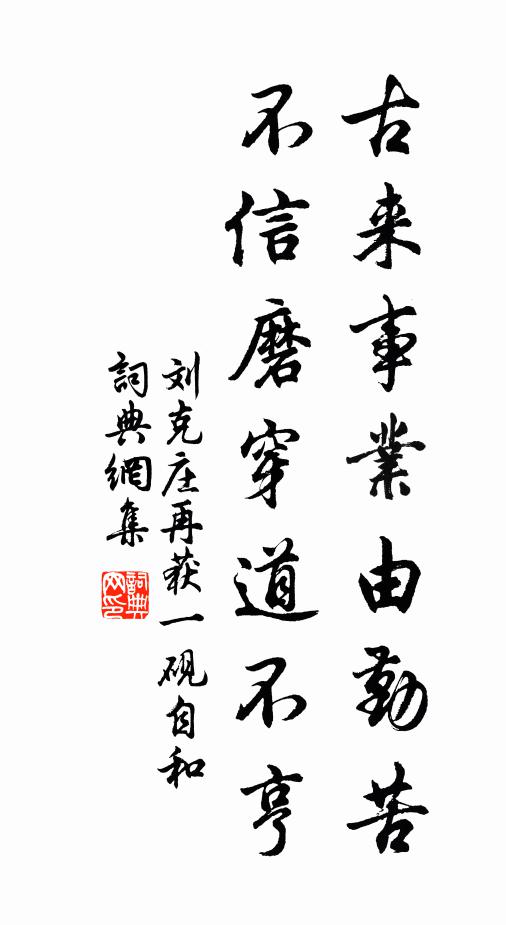 古来事業由勤苦
不信磨穿道不亨
刘克庄再获一砚自和
詞典網集
詞典网印